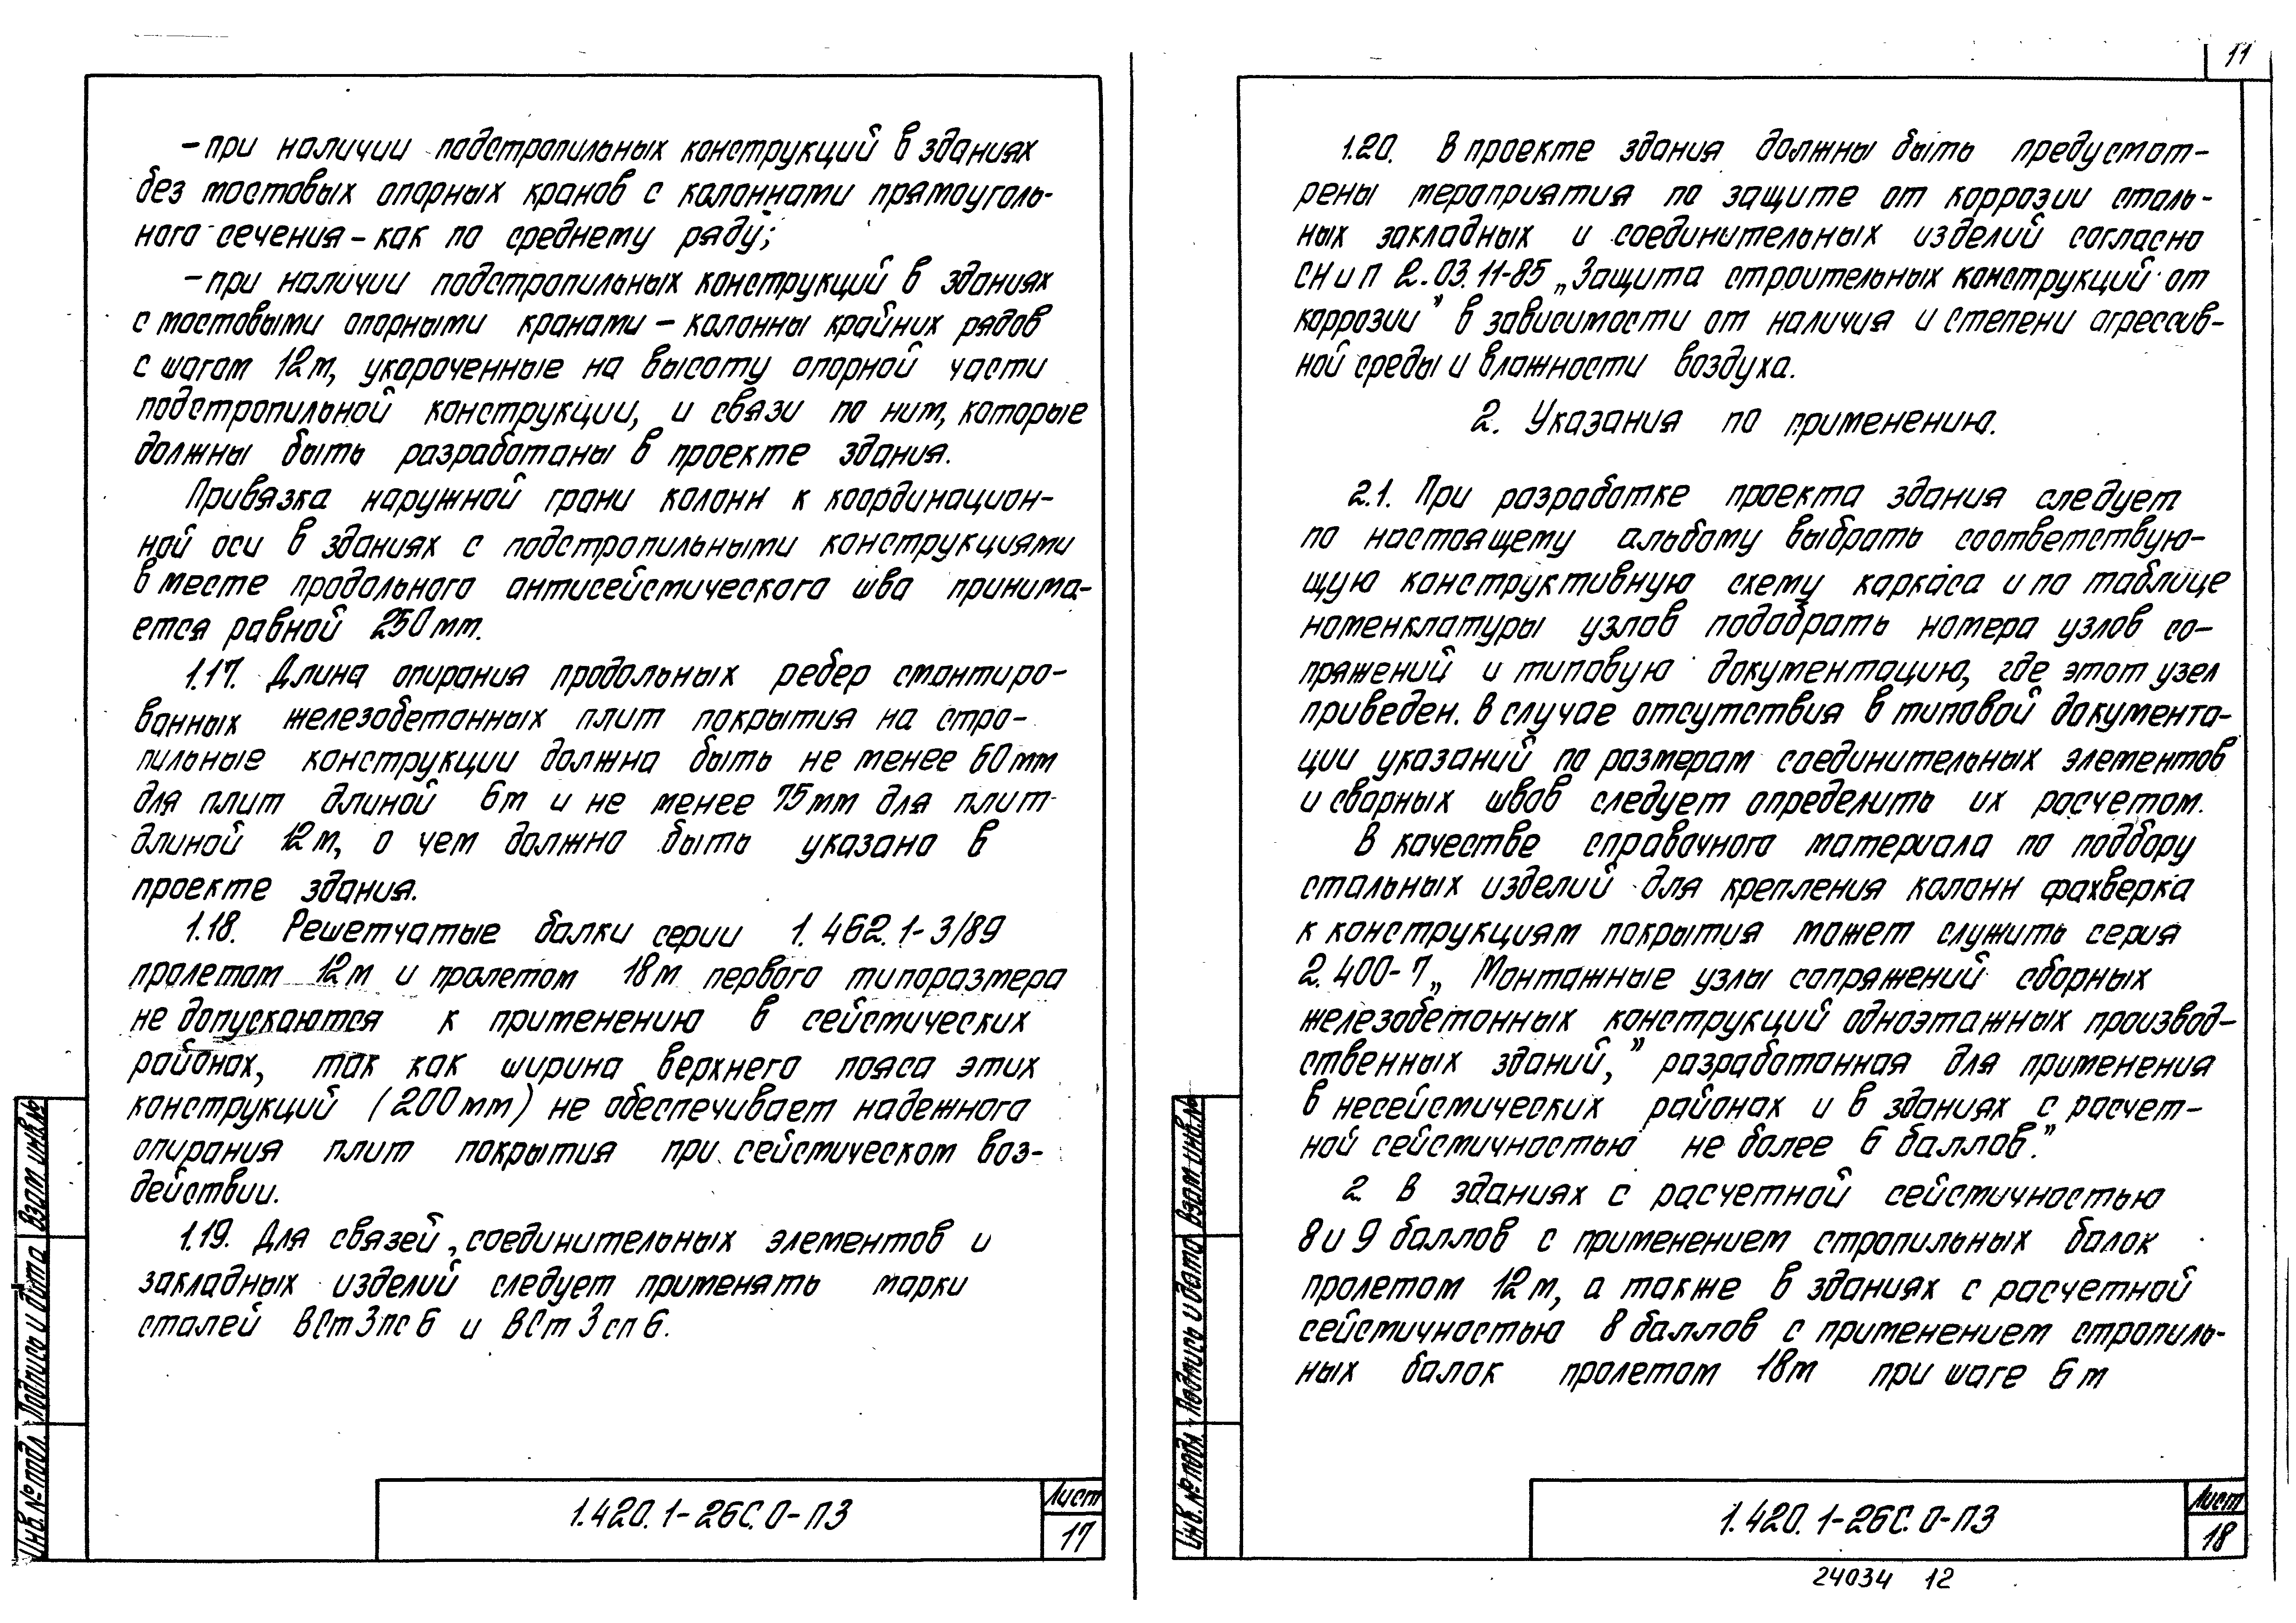 – при наличии подстропильных конструкций в зданиях
без мостовых опорных кранов с колоннами прямоуголь-
ного сечения – как по среднему ряду;
– при наличии подстропильных конструкций в зданиях
с мостовыми опорными кранами – колонны крайних рядов
с шагом 12м, укороченные на высоту опорной части
подстропильной конструкции, и связи по ним, которые
должны быть разработаны в проекте здания.
Привязка наружной грани колонн к координацион-
ной оси в зданиях с подстропильными конструкциями
в месте продольного антисейсмического шва принима-
ется равной 250мм.
1.17. Длина опирания продольных ребер смонтиро-
ванных железобетонных плит покрытия на стро-
пильные конструкции должна быть не менее 60мм
для плит длиной 6м и не менее 75мм для плит
длиной 12м, о чем должно быть указано в
проекте здания.
1.18. Решетчатые балки серии 1.462.1-3/89
пролетом 12м и пролетом 18м первого типоразмера
не допускаются к применению в сейсмических
районах, так как ширина верхнего пояса этих
конструкций (200мм) не обеспечивает надежного
опирания плит покрытия при сейсмическом воз-
действии.
1.19. Для связей, соединительных элементов и
закладных изделий следует применять марки
сталей ВСт3пс6 и ВСт3сп6.
Инв. № подл. Подпись и дата Взам инв.№
1.420.1-26С.0-ПЗ
Лист
17
11
1.20. В проекте здания должны быть предусмот-
рены мероприятия по защите от коррозии сталь-
ных закладных и соединительных изделий согласно
СНиП 2.03.11-85 „Защита строительных конструкций от
коррозии” в зависимости от наличия и степени агрессив-
ной среды и влажности воздуха.
2. Указания по применению.
2.1. При разработке проекта здания следует
по настоящему альбому выбрать соответствую-
щую конструктивную схему каркаса и по таблице
номенклатуры узлов подобрать номера узлов со-
пряжений и типовую документацию, где этот узел
приведен. В случае отсутствия в типовой документа-
ции указаний по размерам соединительных элементов
и сварных швов следует определить их расчетом.
В качестве справочного материала по подбору
стальных изделий для крепления колонн фахверка
к конструкциям покрытия может служить серия
2.400-7 „Монтажные узлы сопряжений сборных
железобетонных конструкций одноэтажных производ-
ственных зданий,” разработанная для применения
в несейсмических районах и в зданиях с расчет-
ной сейсмичностью не более 6 баллов.”
2 В зданиях с расчетной сейсмичностью
8 и 9 баллов с применением стропильных балок
пролетом 12м, а также в зданиях с расчетной
сейсмичностью 8 баллов с применением стропиль-
ных балок пролетом 18м при шаге 6м
Инв. № подл. Подпись и дата Взам инв.№
1.420.1-26С.0-ПЗ
Лист
18
24034 12